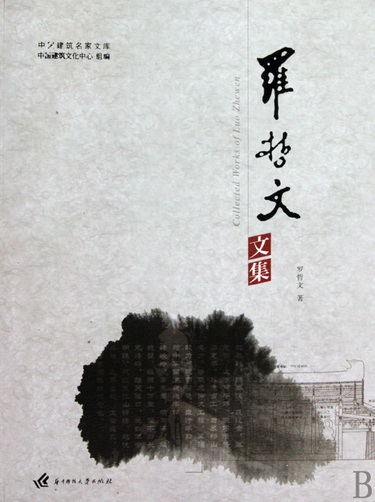 中国建筑名家文库
中国建筑文化中心 组编
羅哲文
Collected Works of Luo Zhewen
文集
罗哲文 著
华中科技大学出版社
B